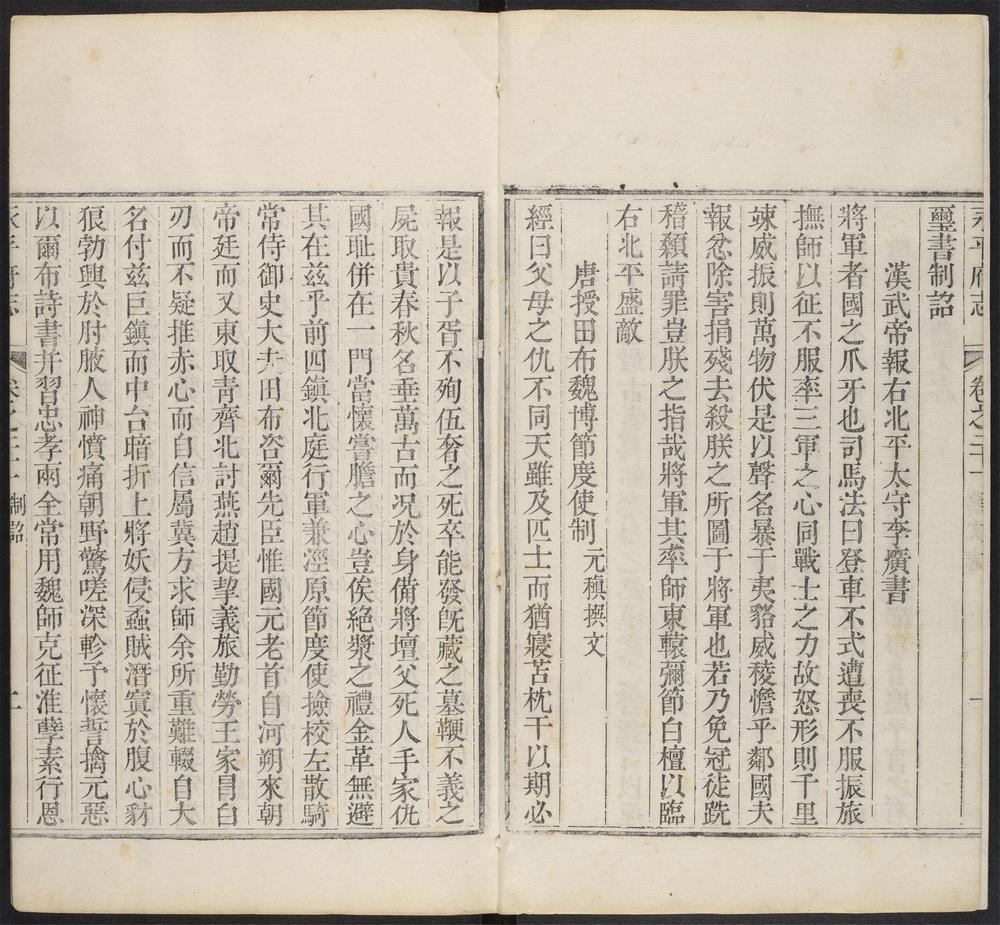 永平府志 卷之二十 一
璽書制詔
漢武帝報右北平太守李廣書
將軍者國之爪牙也司馬法曰登車不式遭喪不服振旅
撫師以征不服率三軍之心同戰士之力故怒形則千里
竦威振則萬物伏是以聲名暴于夷貉威稜憺乎鄰國夫
報忿除害捐殘去殺朕之所圖于將軍也若乃免冠徒跣
稽顙請罪豈朕之指哉將軍其率師東轅彌節白檀以臨
右北平盛敵
唐授田布魏博節度使制 元稹撰文
經曰父母之仇不同天雖及匹士而猶寢苫枕干以期必
報是以子胥不殉伍奢之死卒能發旣藏之墓鞭不義之
屍取貴春秋名垂萬古而況於身備將壇父死人手家仇
國耻併在一門當懷嘗膽之心豈俟絕漿之禮金革無避
其在兹乎前四鎮北庭行軍兼涇原節度使撿校左散騎
常侍御史大夫田布咨爾先臣惟國元老首自河朔來朝
帝廷而又東取靑齊北討燕趙提挈義旅勤勞王家冒白
刃而不疑推赤心而自信屬冀方求師余所重難輟自大
名付兹巨鎮而中台暗折上將妖侵蟊賊潛寅於腹心豺
狠勃興於肘腋人神憤痛朝野驚嗟深軫予懷誓擒元惡
以爾布詩書并習忠孝兩全常用魏師克征淮孽素行恩
永平府志 卷之二十 制詔 二